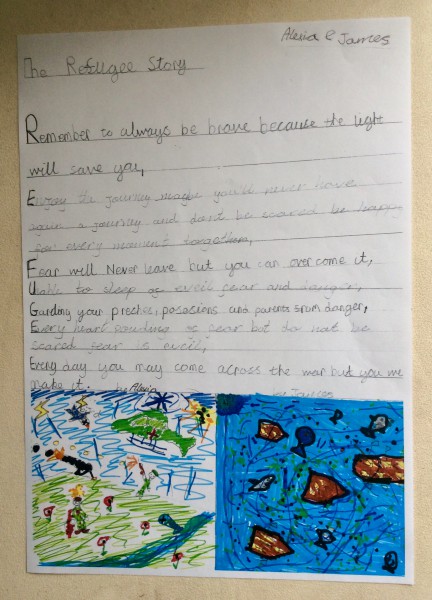 Alexia & James
The Refugee Story
Remember to always be brave because the light
will save you,
Enjoy the journey maybe you'll never have
again a journey and dont be scared be happy
for every moment
Fear will Never leave but you can over come it,
to sleep eveil fear and danger,
Guarding your posesions and parents from danger,
Every heart pounding of fear bot do not be
scared fear is eveil,
Every day you may come across the war but you
make it. by Alexia by James